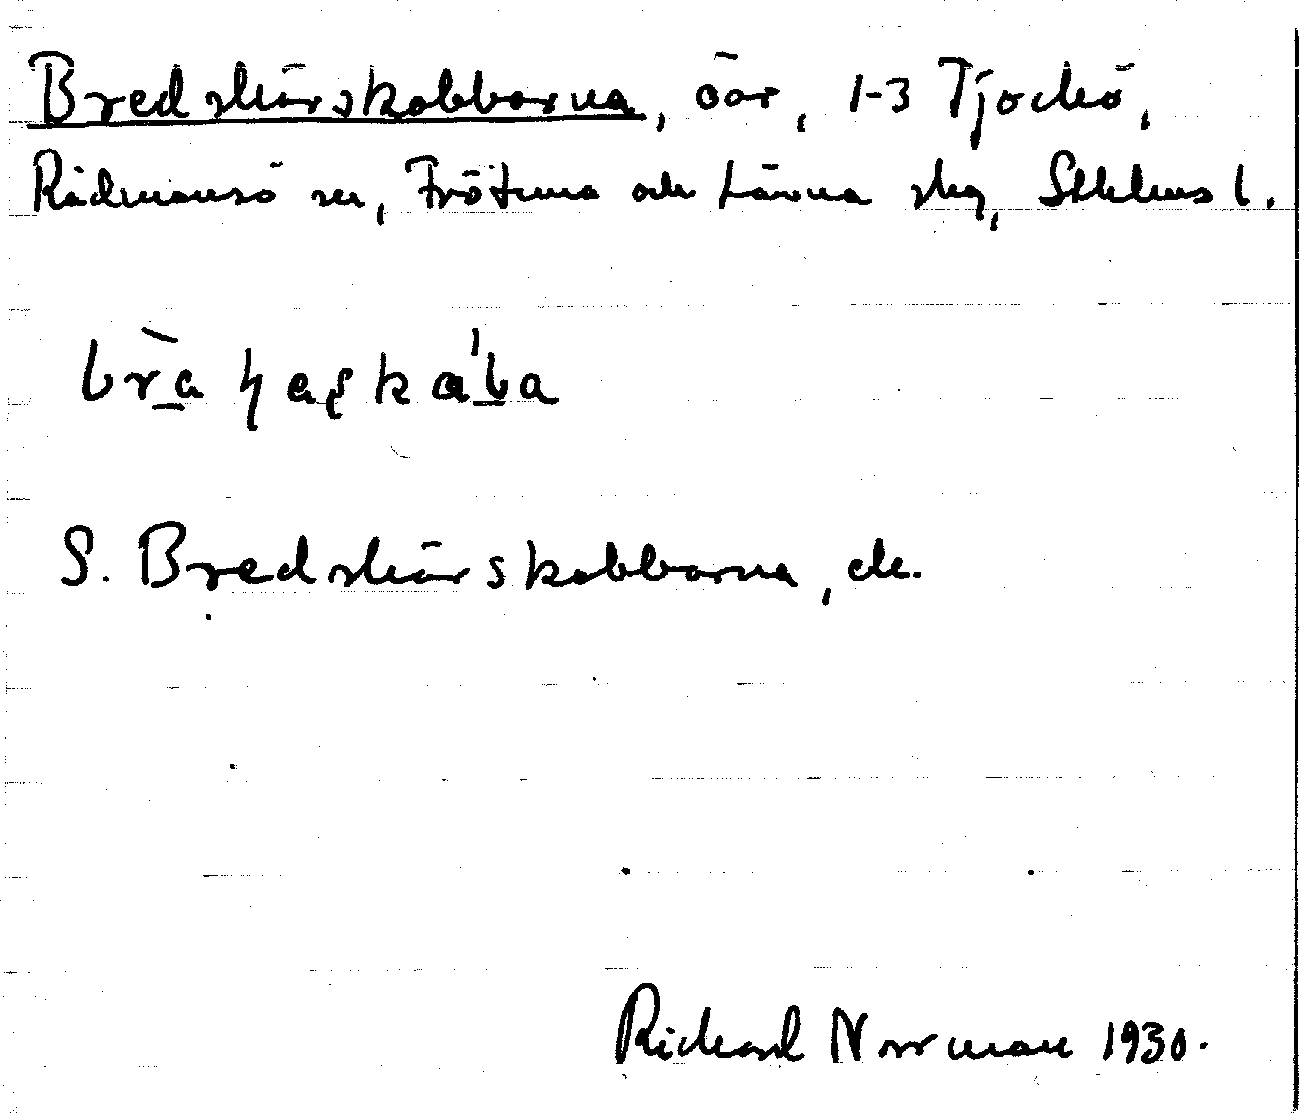 Bredskärskobbarna, öar, 1-3 Tjockö,
Rådmansö sn, Frötuna och Länna skg, Sthlms l.
S. Bredskärskobbarna, de.
Richard Norrman 1930.